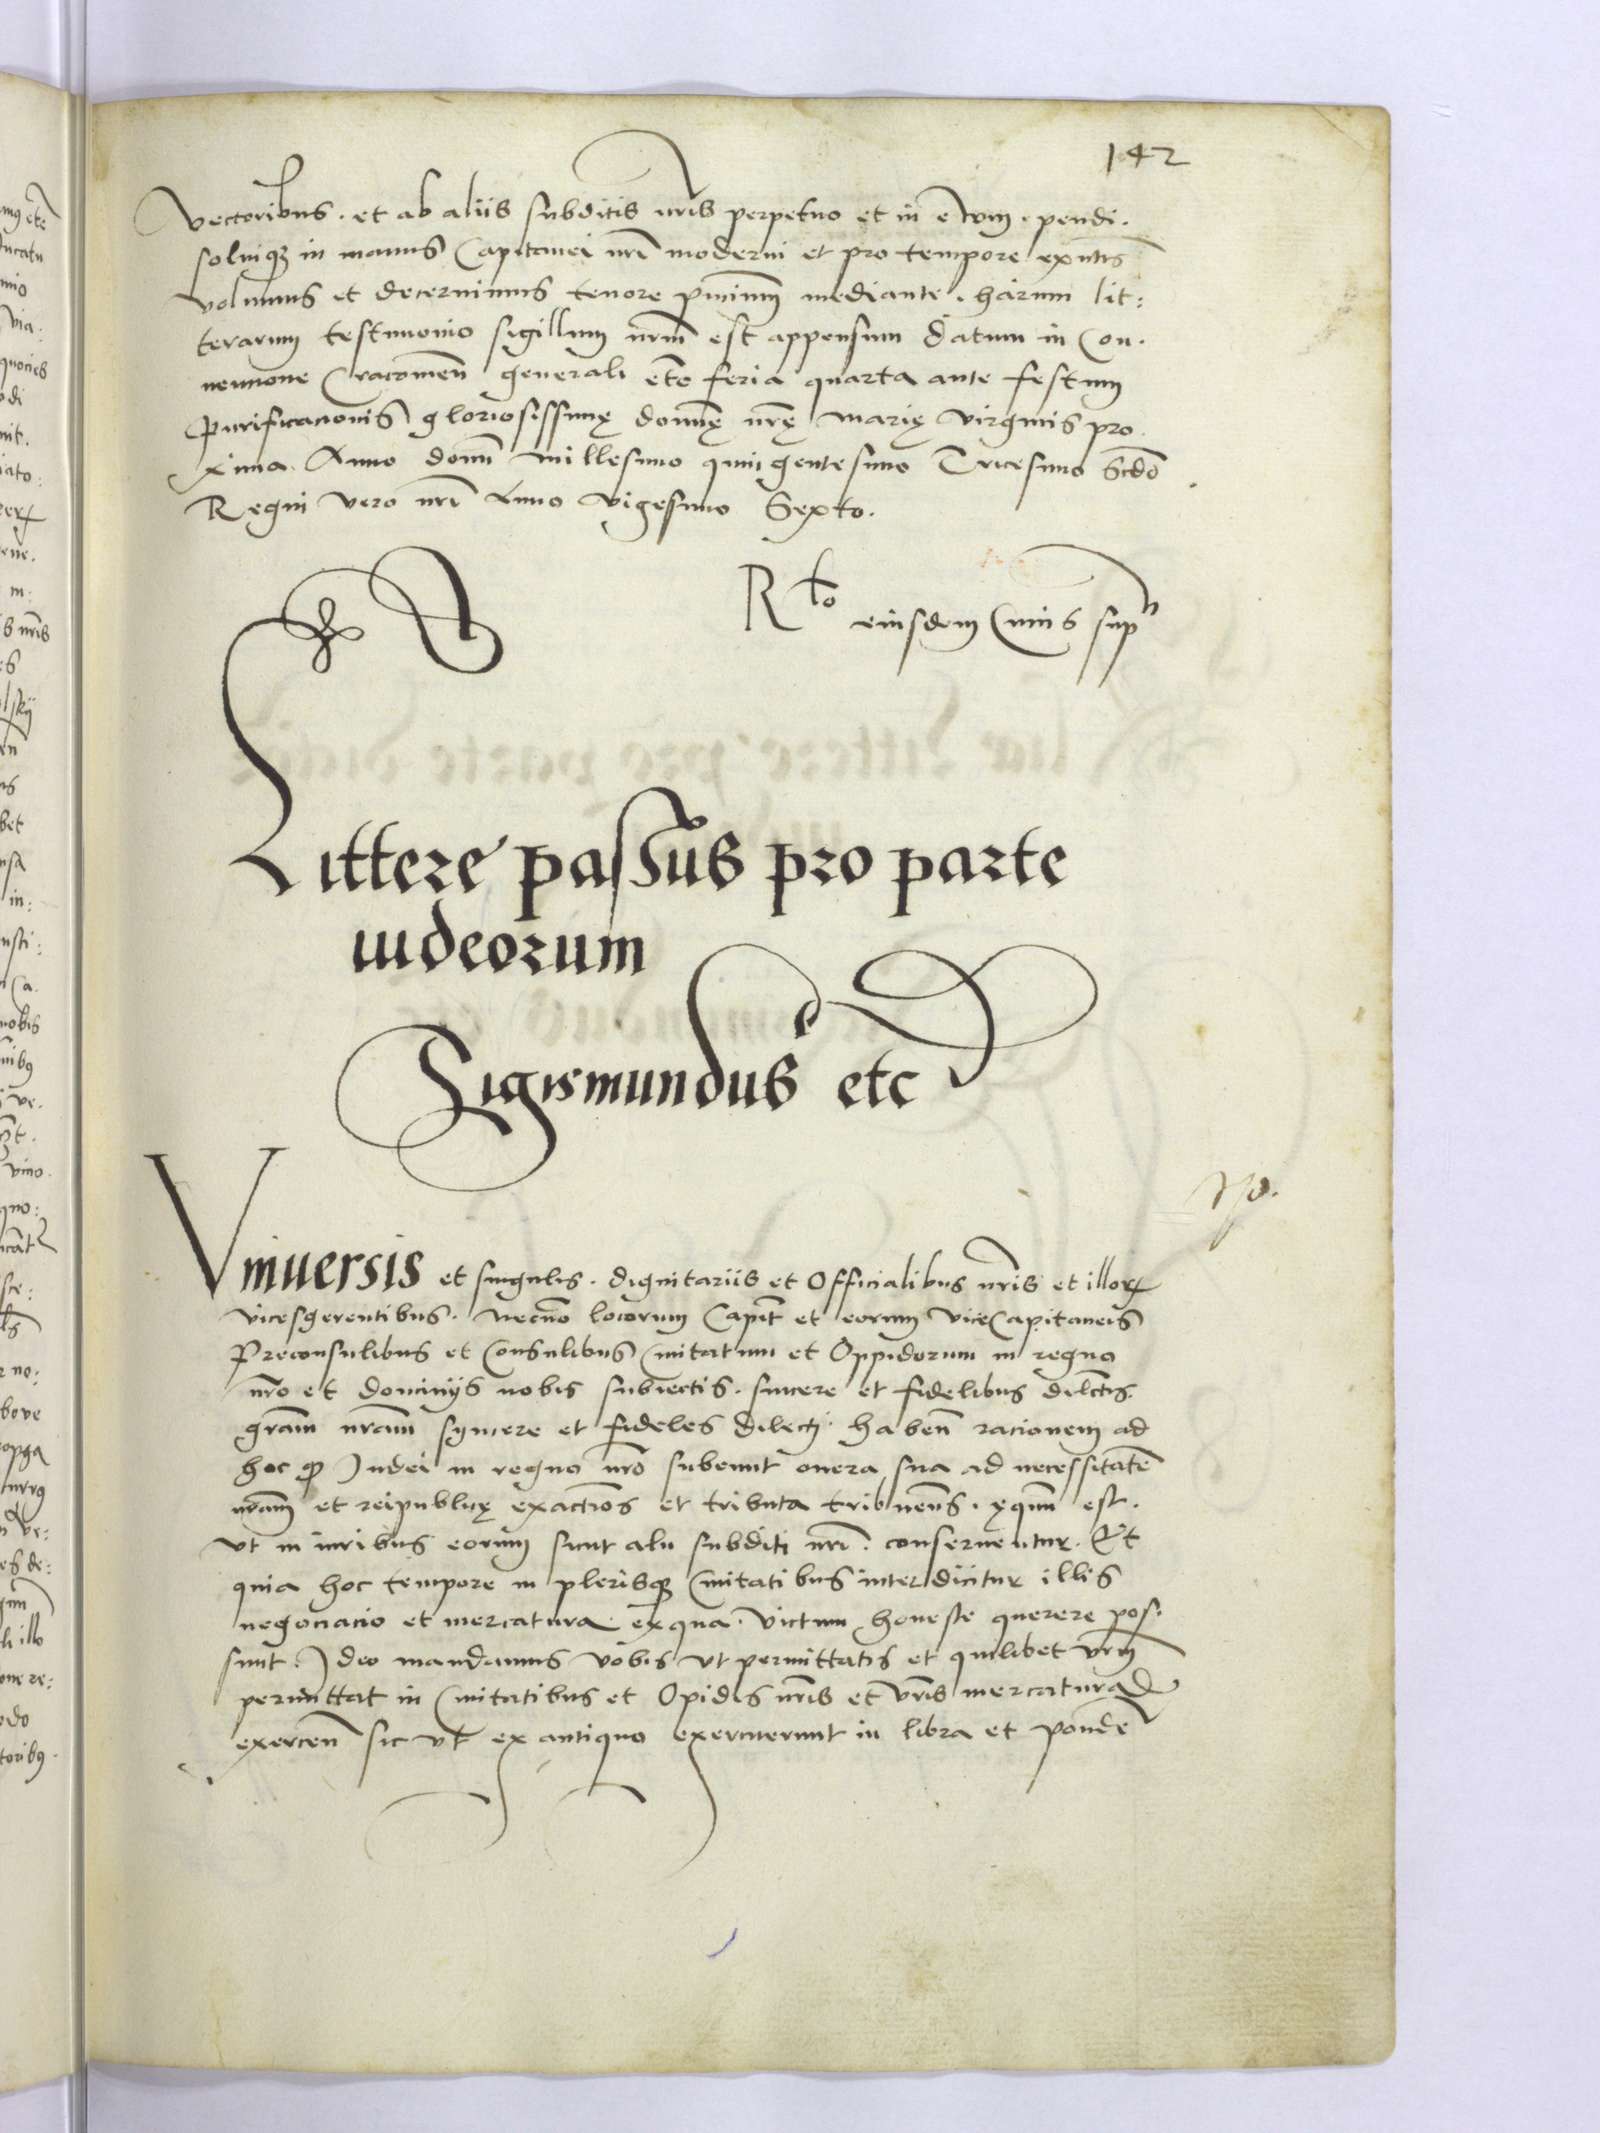 142
vectoribus. et ab aliis subditis nris perpetuo et in ewm. pendi.
soluiq3 in manus Capitanei nri moderni et pro tempore exntis
volumus et decernimus tenore pncium mediante. harum lit:
terarum testimonio sigillum nrm est appensum datum in Con.
uencione Cracouien generali etc feria quarta ante festum
Purificacionis gloriosissimę domnę nrę marię virginis pro
xima. Anno domi millesimo quingentesimo Tricesimo Scdo
Regni vero nri Anno vigesimo Sexto.
Rto eiusdem Cuius supr
Littere passus pro parte
iudeorum
Sigismundus etc
Vniuersis et singulis. dignitariis et Officialibus nris et illor
vicesgerentibus. necno locorum Capit et eorum viceCapitaneis
Preconsulibus et Consulibus Ciuitatum et Oppidorum in regno
nro et dominijs nobis subiectis. sincere et fidelibus dilctis
gram nram syncere et fideles dilecti. haben racionem ad
hoc q Iudei in regno nro subeunt onera sua ad necessitate
nram et reipublicę exactios et tributa tribuens. ęquum est.
vt in iuribus eorum sicut alii subditi nri. conseruentur. Et
quia hoc tempore in plerisq3 Ciuitatibus interdicitur illis
negociacio et mercatura ex qua. victum honeste querere pos.
sunt. Ideo mandamus vobis vt permittatis et quilibet vrm
permittat in Ciuitatibus et Opidis nris et vris mercatura
exercen sic vt ex antiquo exercuerunt in libra et ponde